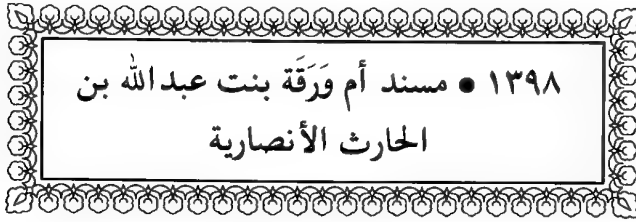 ١٣٩٨ • مسند أم وَرَقَة بنت عبدالله بن
الحارث الأنصارية